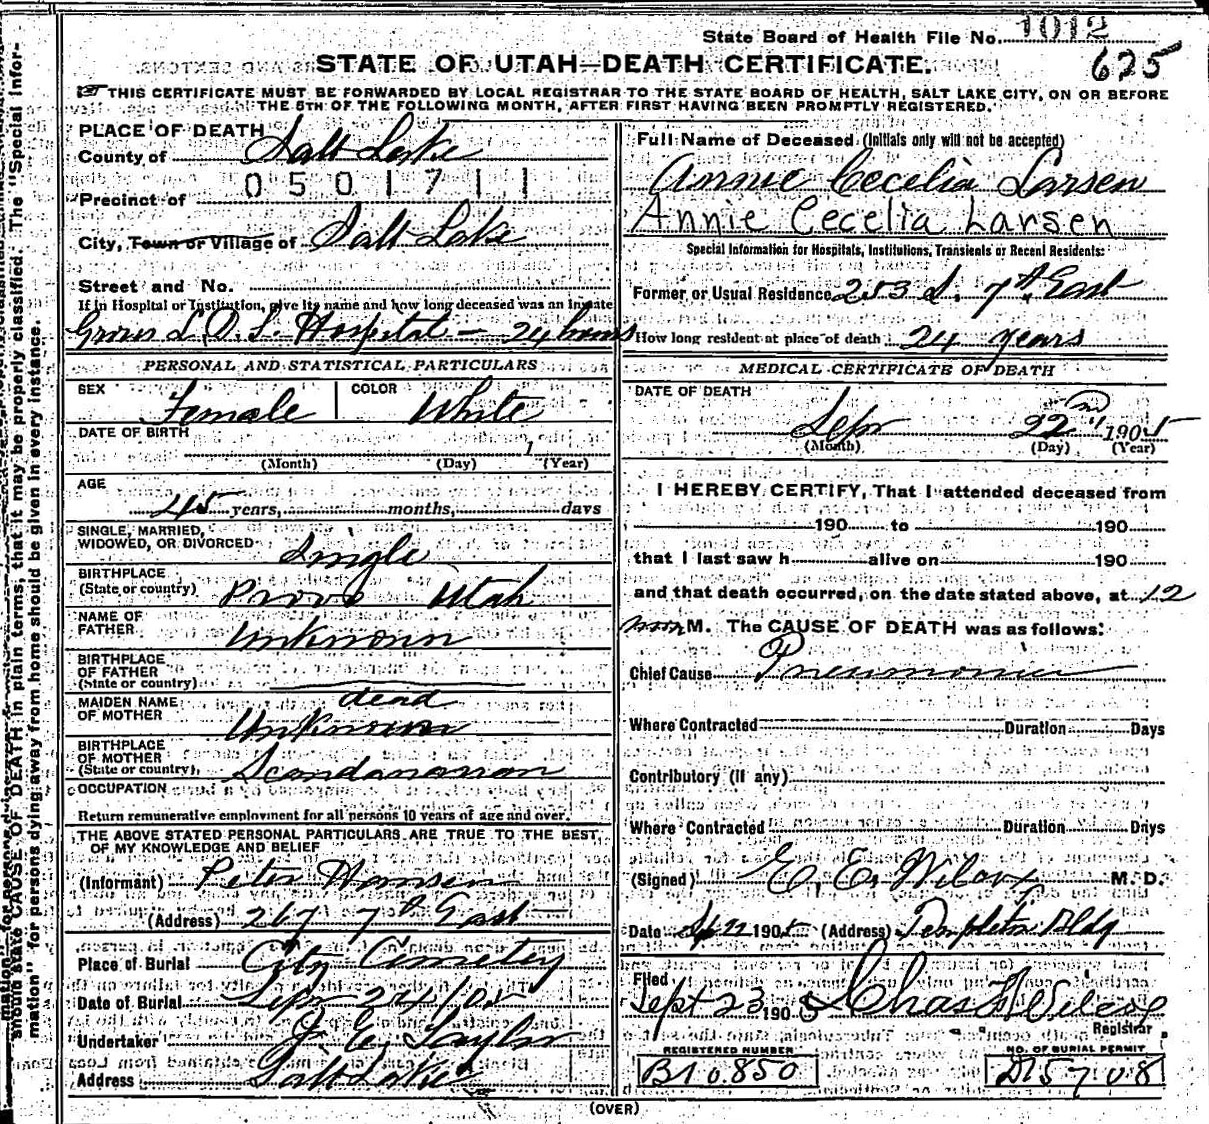 State Board of Health File No. 1012
625
STATE OF UTAH—DEATH CERTIFICATE.
THIS CERTIFICATE MUST BE FORWARDED BY LOCAL REGISTRAR TO THE STATE BOARD OF HEALTH, SALT LAKE CITY, ON OR BEFORE
THE 5TH OF THE FOLLOWING MONTH, AFTER FIRST HAVING BEEN PROMPTLY REGISTERED.
PLACE OF DEATH
County of Salt Lake
0501711
Precinct of
City, Town or Village of Salt Lake
Street and No.
If in Hospital or Institution, give its name and how long deceased was an inmate
L.D.S. Hospital — 24 hours
PERSONAL AND STATISTICAL PARTICULARS
SEX Female COLOR White
DATE OF BIRTH
(Month) (Day) 1 (Year)
AGE
45 years, months, days
SINGLE, MARRIED,
WIDOWED, OR DIVORCED Single
BIRTHPLACE
(State or country) Provo Utah
NAME OF
FATHER Unknown
BIRTHPLACE
OF FATHER
(State or country)
dead
MAIDEN NAME
OF MOTHER Unknown
BIRTHPLACE
OF MOTHER
(State or country) Scandanavian
OCCUPATION
Return remunerative employment for all persons 10 years of age and over.
THE ABOVE STATED PERSONAL PARTICULARS ARE TRUE TO THE BEST
OF MY KNOWLEDGE AND BELIEF
(Informant) Peter Hansen
(Address) 267 7th East
Place of Burial City Cemetery
Date of Burial Sept 24/05
Undertaker J. E. Taylor
Address Salt Lake
Full Name of Deceased (Initials only will not be accepted)
Annie Cecelia Larsen
Annie Cecelia Larsen
Special Information for Hospitals, Institutions, Transients or Recent Residents:
Former or Usual Residence 253 S. 7th East
How long resident at place of death 24 years
MEDICAL CERTIFICATE OF DEATH
DATE OF DEATH
Sep 22nd 1905
(Month) (Day) (Year)
I HEREBY CERTIFY, That I attended deceased from
190 to 190
that I last saw h alive on 190
and that death occurred, on the date stated above, at 12
M. The CAUSE OF DEATH was as follows:
Chief Cause Pneumonia
Where Contracted Duration Days
Contributory (if any)
Where Contracted Duration Days
(Signed) E. E. Wilcox M. D.
Date Sep 22 1905 (Address) Templeton Bldg
Filed
Sept 23 1905 Chas Wilcox
Registrar
REGISTERED NUMBER
B10850
NO. OF BURIAL PERMIT
D15708
(OVER)
should state CAUSE OF DEATH in plain terms, that it may be properly classified. The "Special Infor-
mation" for persons dying away from home should be given in every instance.